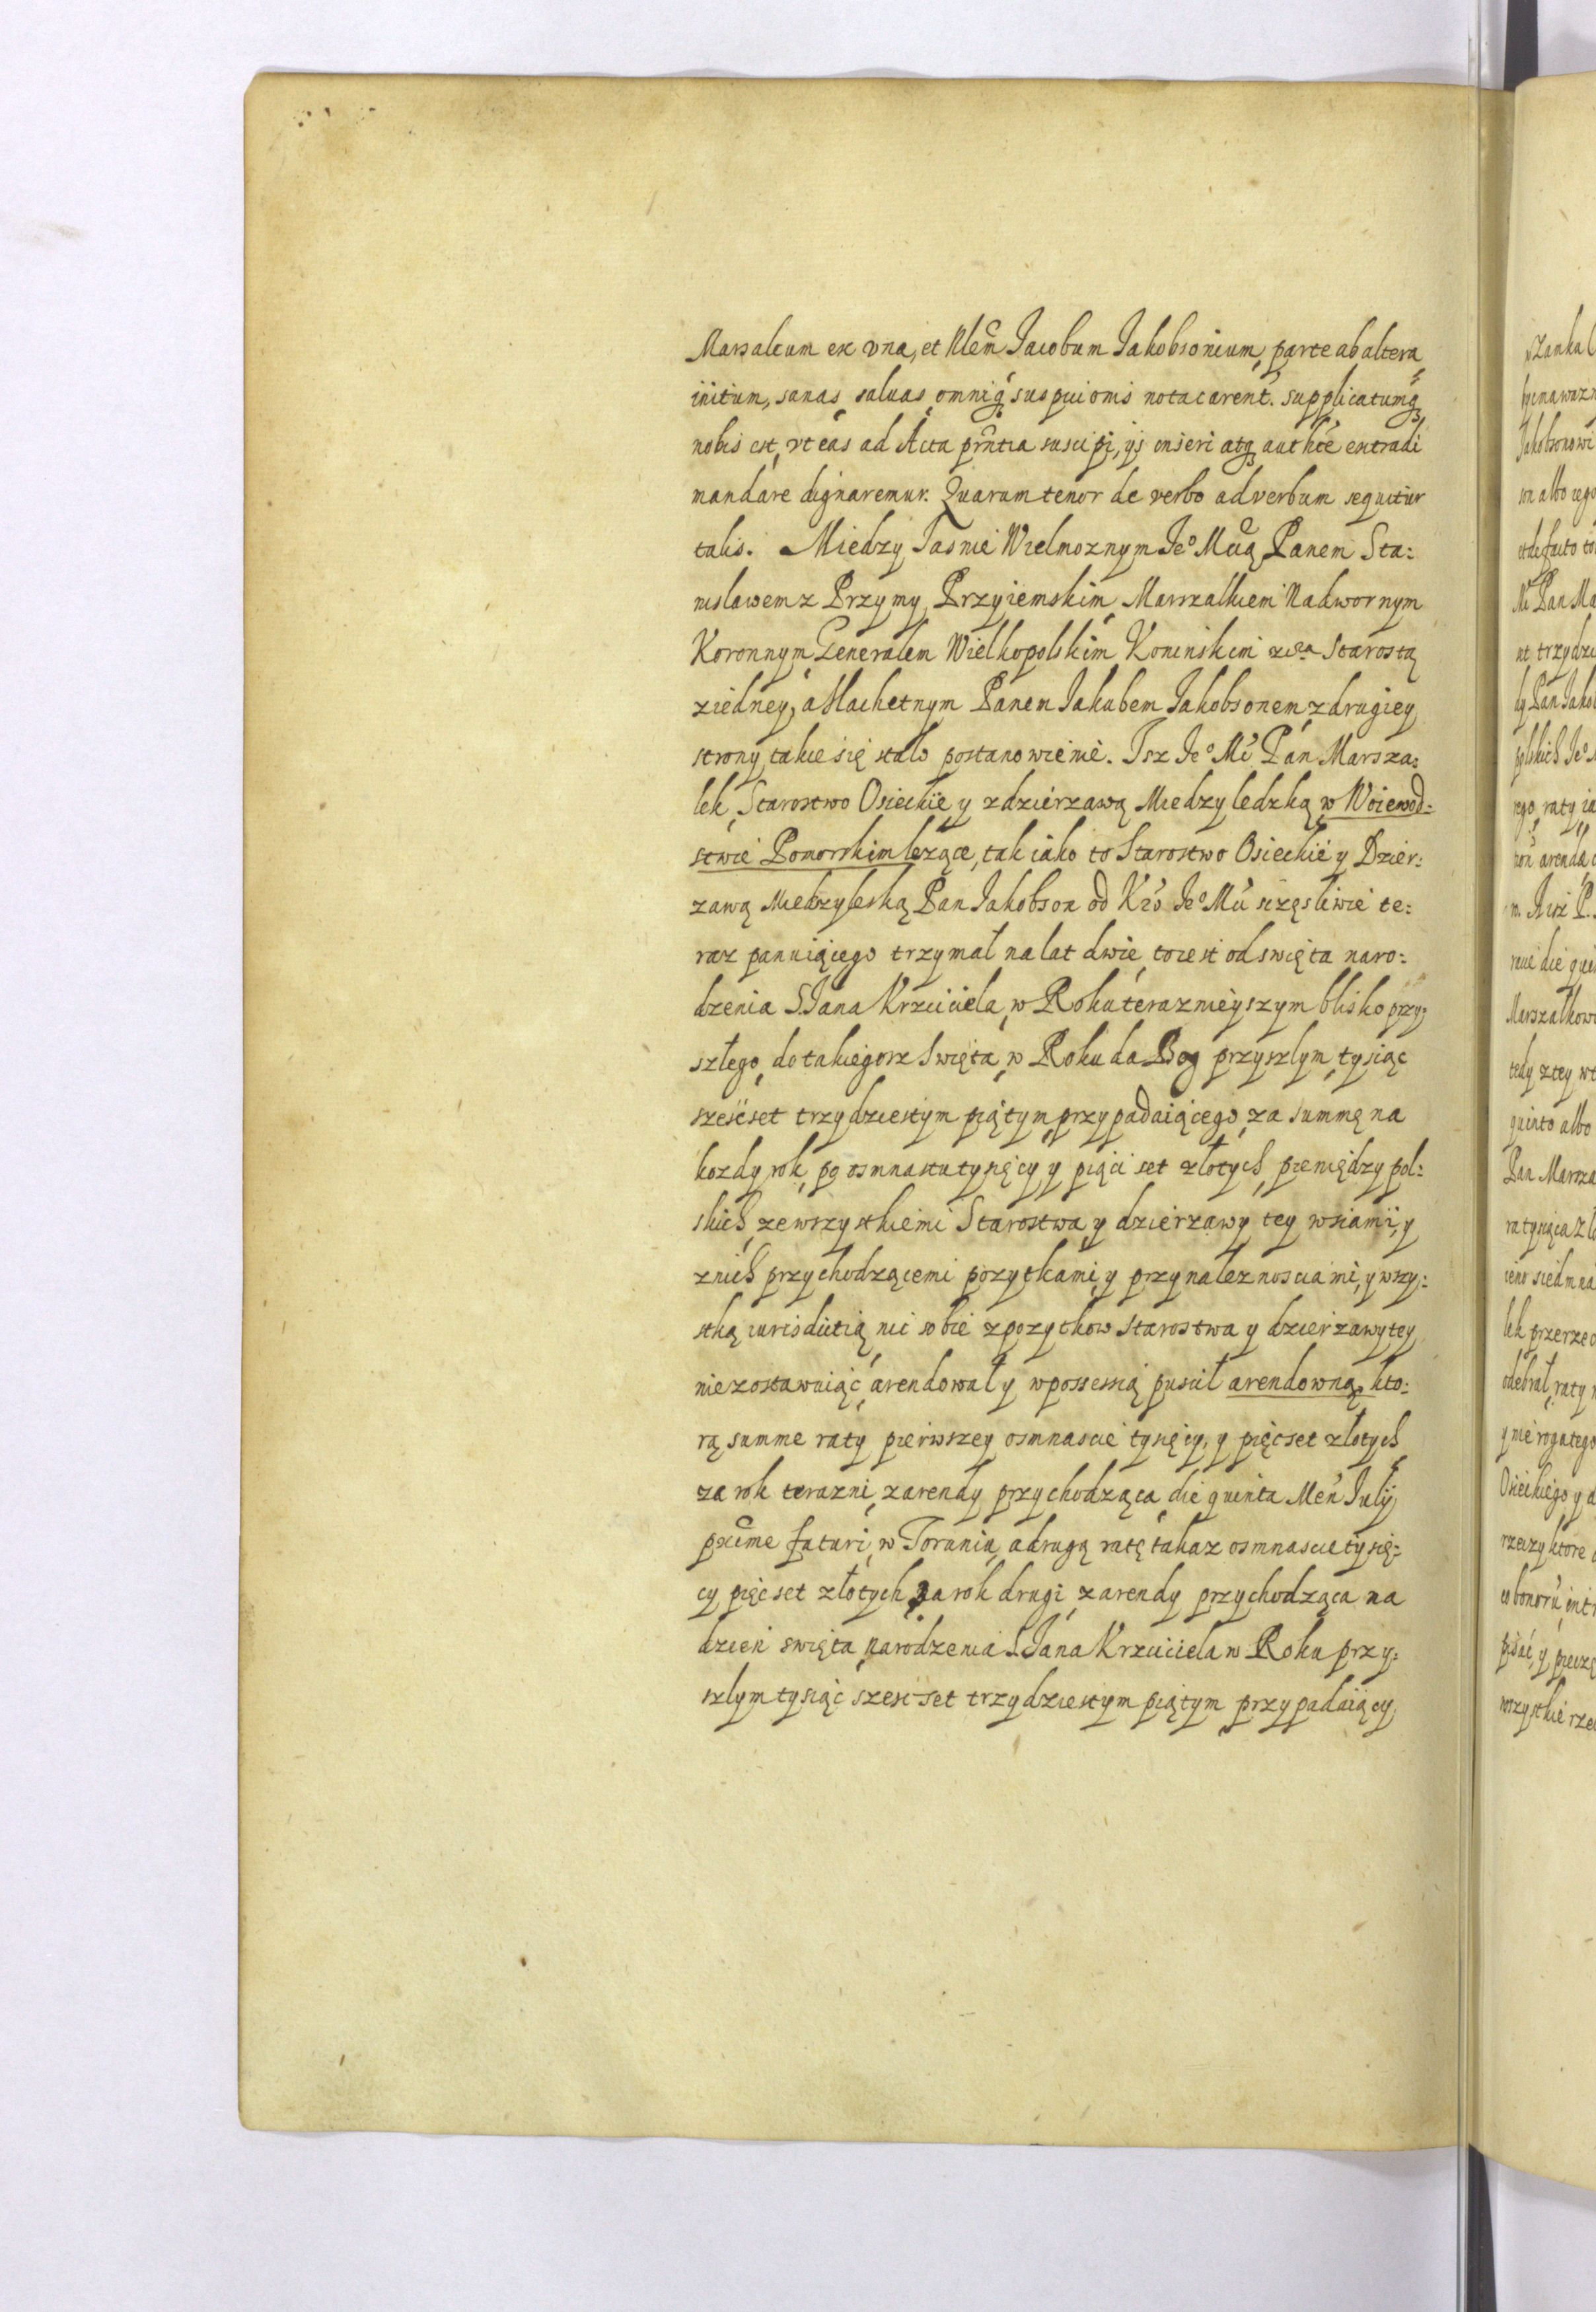 Marsalcum ex vna, et Nlem Jacobum Jakobsonium, parte ab altera
initum, sanas, saluas, omniq; suspicionis nota carent. supplicatumq;
nobis est, vt eas ad Acta prntia suscipi, ijs inseri atq; authce extradi
mandare dignaremur. Quarum tenor de verbo ad verbum sequitur
talis. Miedzy Jasnie Wielmoznym Je° Mcią Panem Sta:
nislawem z Przymy Przyiemskim, Marszalkiem Nadwornym
Koronnym, Generalem Wielkopolskim Koninskim Starostą
ziedney, a Slachetnym Panem Jakubem Jakobsonem, zdrugiey
strony, takie się stalo postanowienie. Isz Je° Mć Pán Marsza:
lek, Starostwo Osieckie, y zdzierzawą Miedzyledzką, w Woiewod:
stwie Pomorskim lezące, tak iako to Starostwo Osieckie y Dzier:
zawą Miedzyleską Pan Jakobson od Kró Je° Mći sczęsliwie te:
raz panuiącego trzymał na lat dwie, to iest od swięta naro:
dzenia S. Jana Krzciciela, w Roku teraznieyszym blisko przy:
szłego, do takiegosz Swięta, w Roku da Bog przyszlym, tysiąc
sześćset trzydziestym piątym przypadaiącego, za summę na
kozdy rok, po osmnastu tysięcy, y pięci set złotych, pieniędzy pol:
skich, ze wszystkiemi Starostwa, y dzierzawy tey wsiami, y
znich przychodzącemi pozytkami, y przynaleznosciami, y wszy:
stką iurisdictią nic sobie z pozytkow Starostwa y dzierzawy tey
nie zostawuiąc, arendował y w possessią puscił arendowną, kto:
rą summe raty pierwszey osmnascie tysięcy, y pięcset złotych
za rok terazni, z arendy przychodząca, die quinta Men Julij
prime futuri, w Toruniu, a drugą ratę takaz osmnascie tysię:
cy pięc set złotych, za rok drugi, z arendy przychodząca na
dzien swięta, narodzenia S. Jána Krzciciela w Roku przy:
szlym tysiąc szesc set trzydziestym piątym przypadaiący,